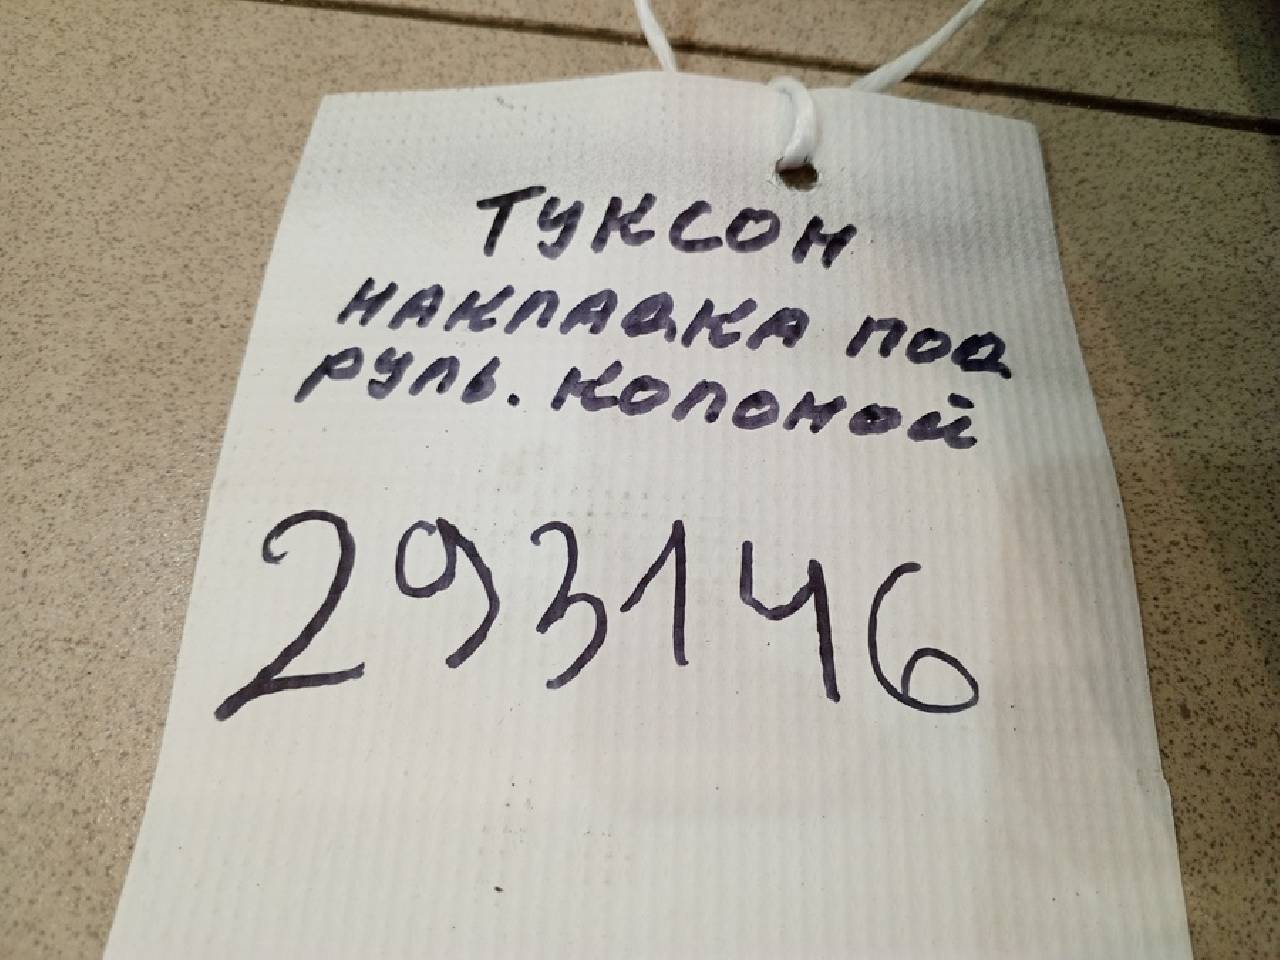 ТУКСОН
НАКЛАДКА ПОД
РУЛЬ. КОЛОНОЙ
293146